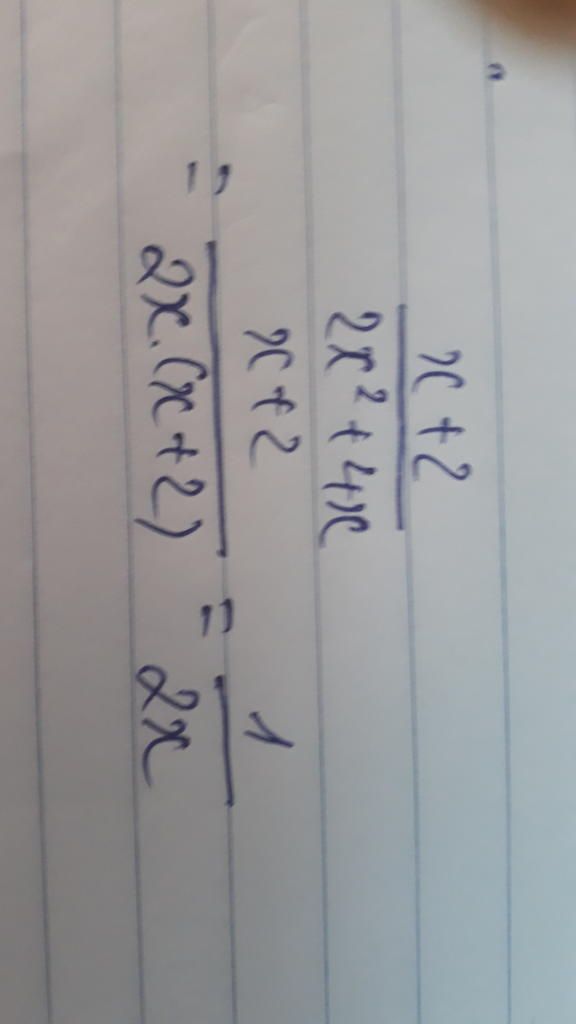 x + 2
2x² + 4x
= x + 2 = 1
2x.(x + 2) 2x